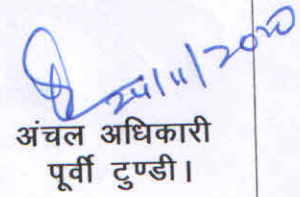 24/11/2020
अंचल अधिकारी
पूर्वी टुण्डी।